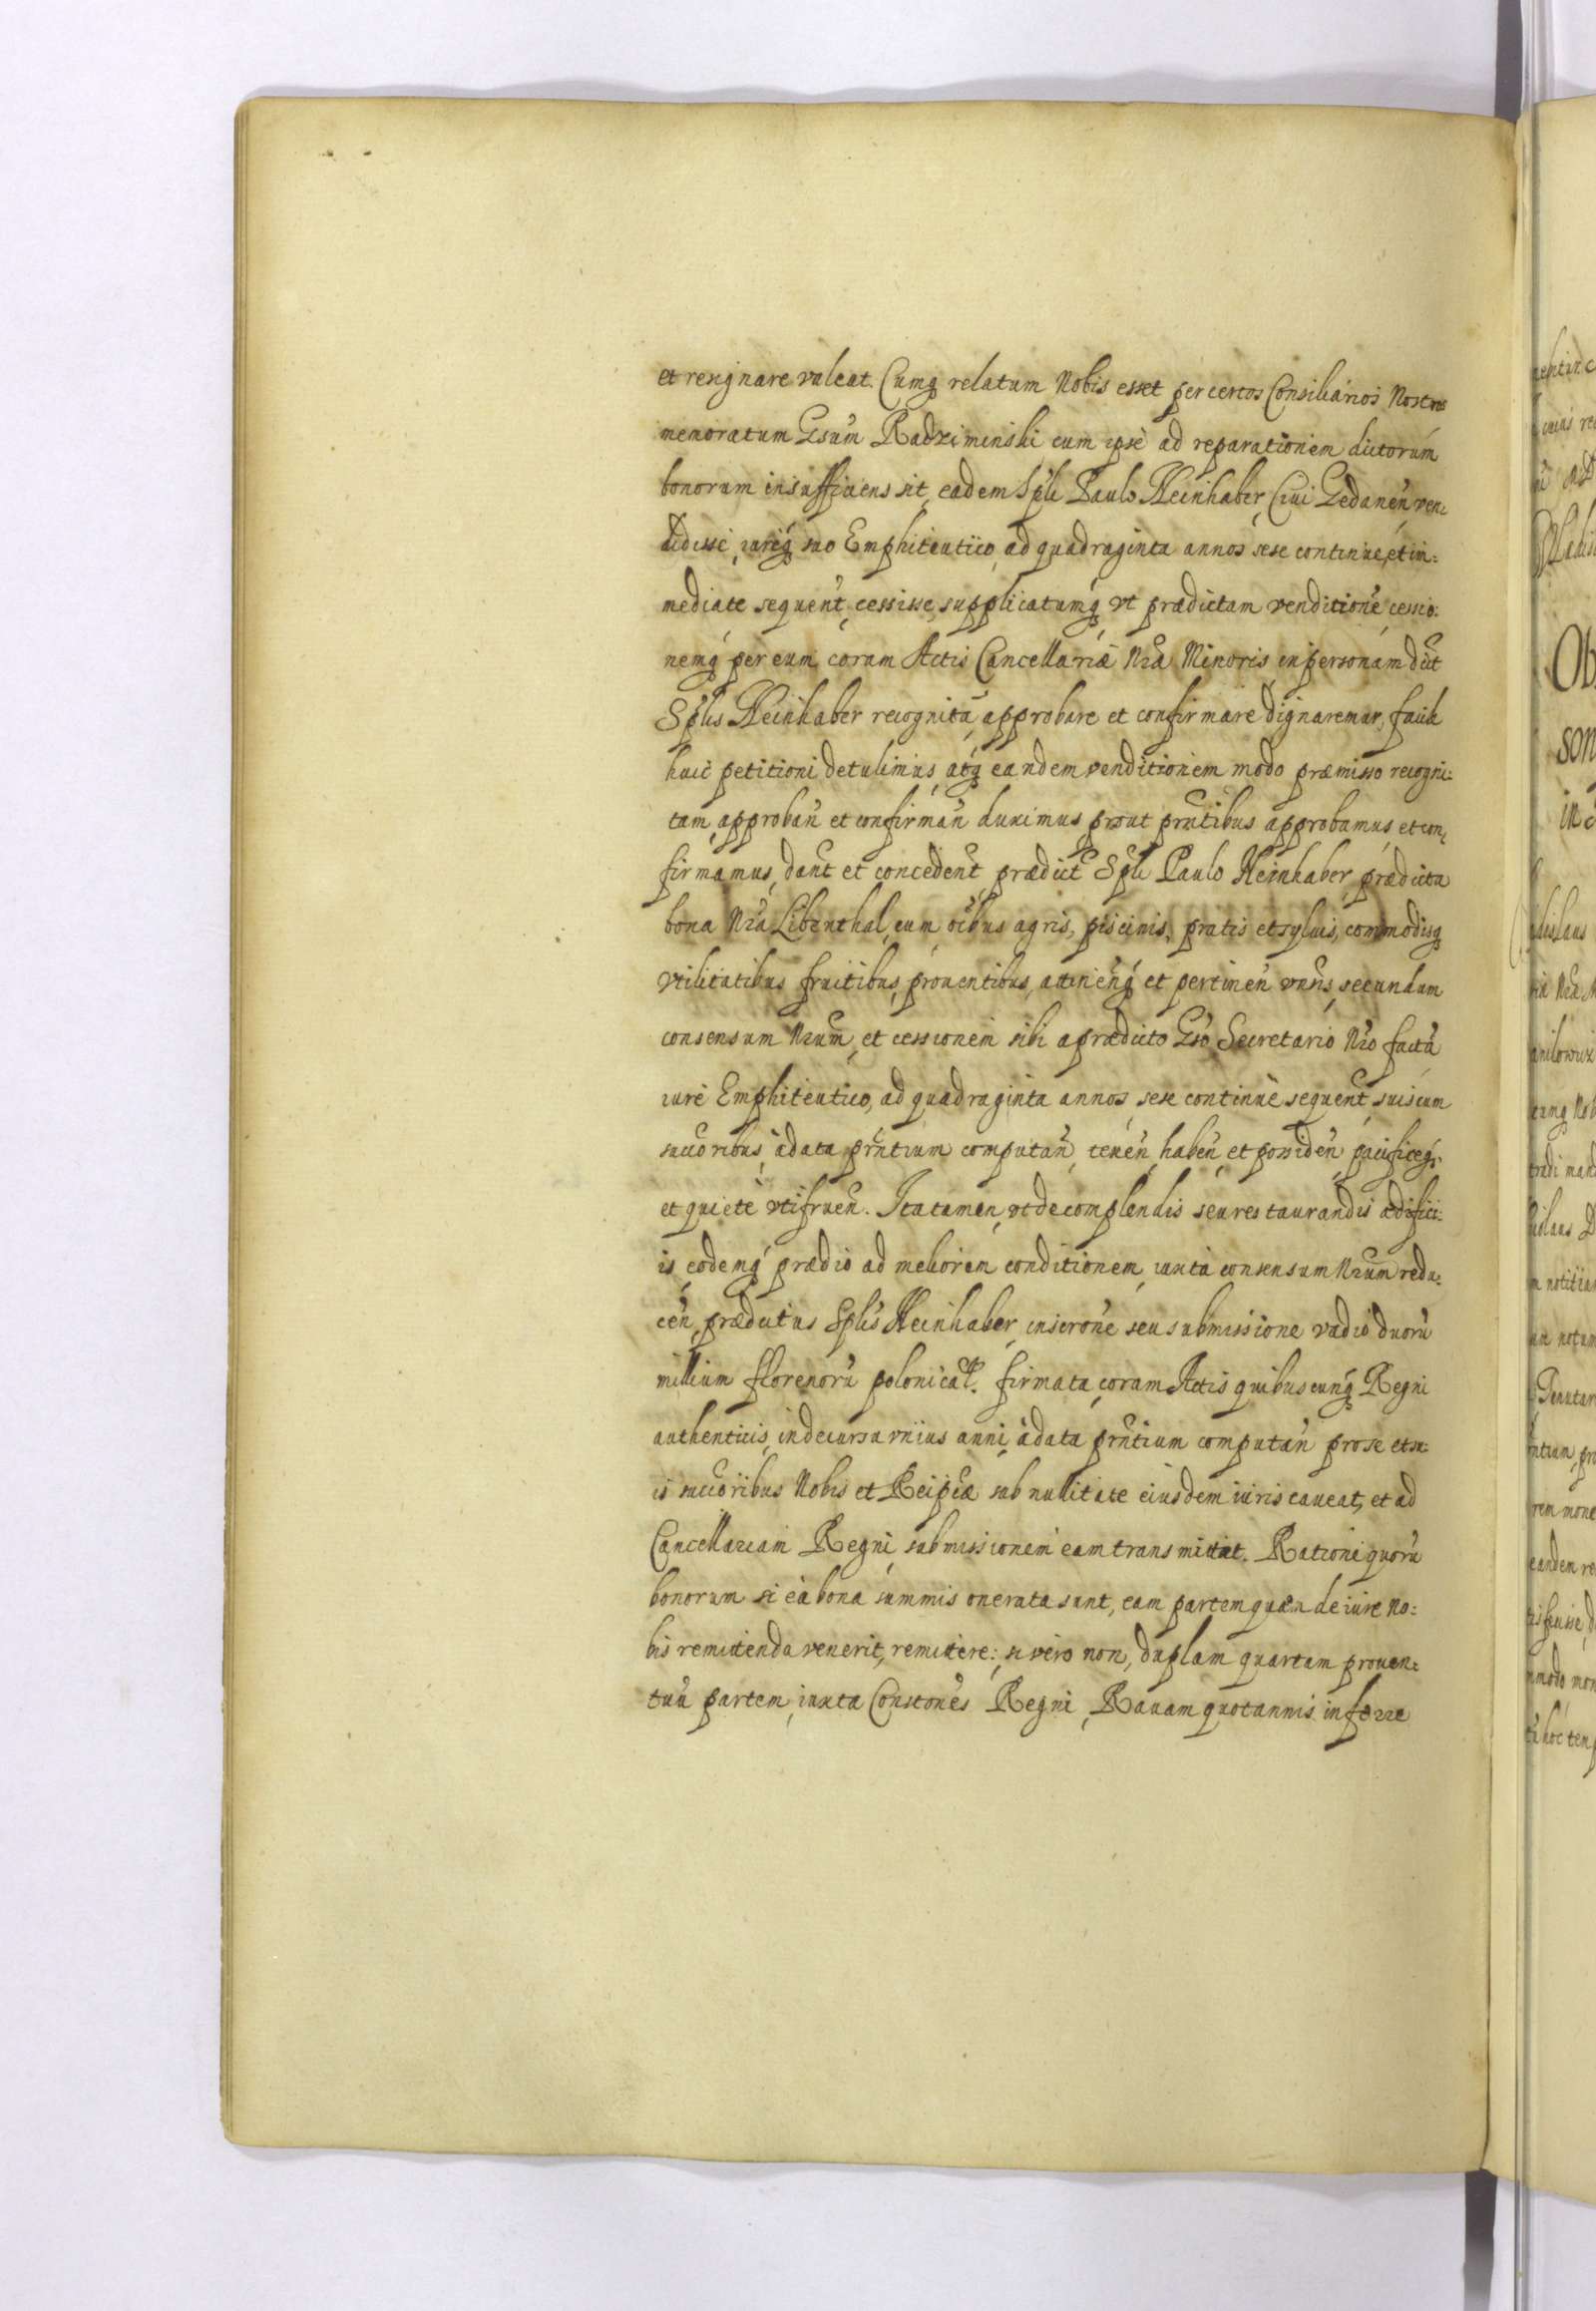 et resignare valeat. Cumq relatum Nobis esset per certos Consiliarios Nostros
memoratum Gsum Radziminski cum ipse ad reparationem dictorum
bonorum insufficiens sit, eadem Spli Paulo Heinhaber, Ciui Gedanen ven:
didisse, iureq suo Emphiteutico, ad quadraginta annos sese continue, et im:
mediate sequent, cessisse, supplicatumq, vt prædictam venditione, cessio:
nemq per eum, coram Actis Cancellariæ Nræ Minoris, in personam dict
Splis Heinhaber recognita, approbare et confirmare dignaremur, facile
huic petitioni detulimus, atq eandem venditionem modo præmisso recogni:
tam, approban et confirman duximus, prout prntibus approbamus et con:
firmamus, dant et concedent prædict Spli Paulo Heinhaber, prædicta
bona Nra Libenthal, cum oibus agris, piscinis, pratis et syluis, commodisq
vtilitatibus fruitibus, prouentibus, attinenq et pertinen vnuris, secundum
consensum Nrum, et cessionem sibi a prædicto Gso Secretario Nro facta
iure Emphiteutico, ad quadraginta annos, sese continue sequent, suis cum
succoribus, à data prntium computan, tenen, haben, et possiden, pacificeq,
et quiete vtifruen. Ita tamen, vt de complendis seu restaurandis ædifici:
is, eodemq prædio ad meliorem conditionem, iuxta consensum Nrum redu:
cen, prædictus Splis Heinhaber, inscrone seu submissione vadio duoru
millium florenoru polonical. firmata, coram Actis quibuscunq Regni
authenticis, in decursu vnius anni, à data prntium computan pro se et su:
is succoribus Nobis et Reipcæ sub nullitate eiusdem iuris caueat, et ad
Cancellariam Regni, submissionem eam transmittat. Rationi quoru
bonorum si ea bona summis onerata sunt, eam partem quæ de iure No:
bis remittenda venerit, remittere: si vero non, duplam quartam prouen:
tuu partem, iuxta Constones Regni, Rauam quotannis inferre